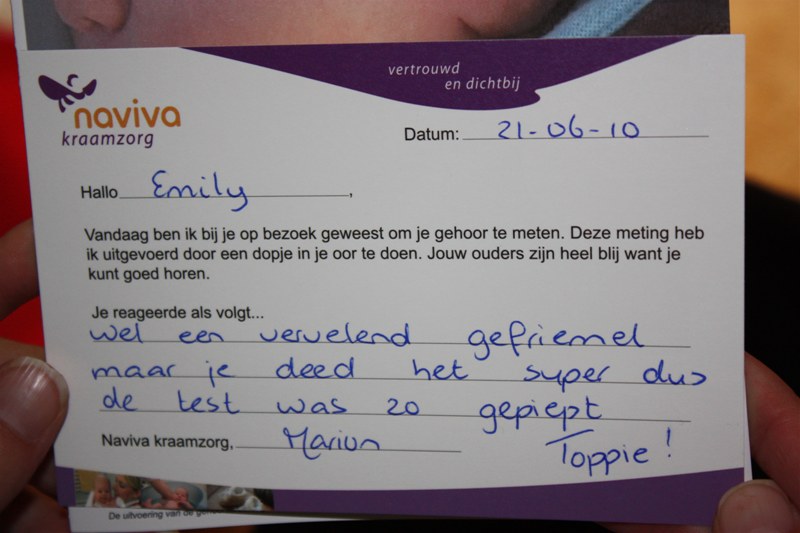 vertrouwd
en dichtbij
naviva
kraamzorg
Datum: 21-06-10
Hallo Emily,
Vandaag ben ik bij je op bezoek geweest om je gehoor te meten. Deze meting heb
ik uitgevoerd door een dopje in je oor te doen. Jouw ouders zijn heel blij want je
kunt goed horen.
Je reageerde als volgt...
wel een vervelend gefriemel
maar je deed het super dus
de test was zo gepiept
Naviva kraamzorg, Marion
Toppie!
De uitvoering van de